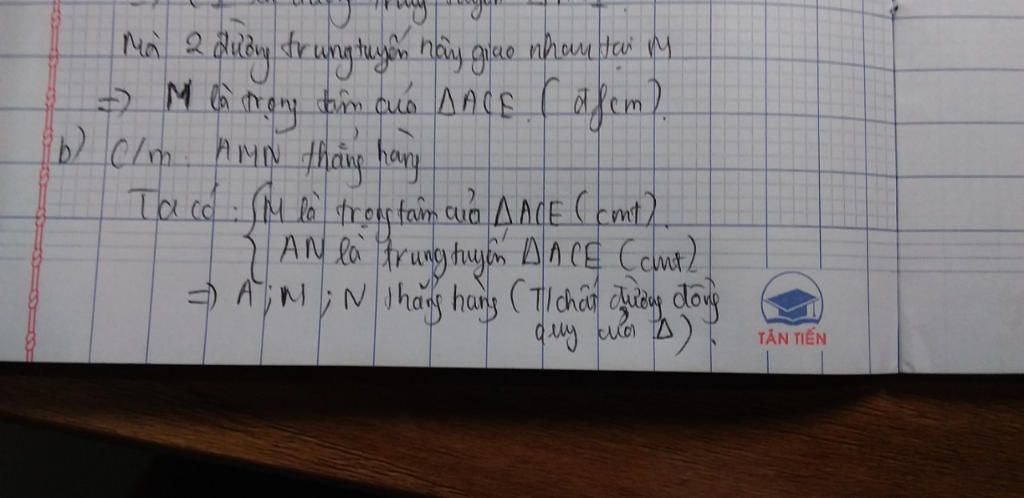 Mà 2 đường trung tuyến này giao nhau tại M
=> M là trọng tâm của ΔACE. (đfcm).
b) C/m: AMN thẳng hàng
Ta có: { M là trọng tâm của ΔACE (cmt).
AN là trung tuyến ΔACE (cmt)
=> A; M; N thẳng hàng (T/chất đường đồng
quy của Δ).
TÂN TIẾN